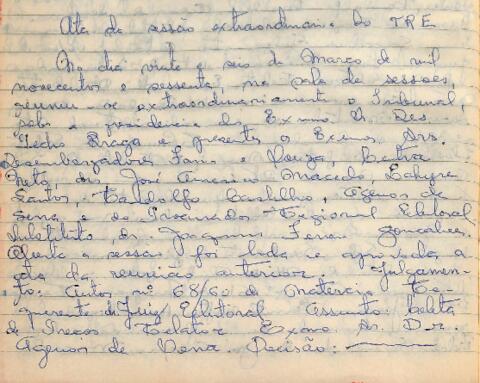 Ata da sessão extraordinaria do TRE
No dia vinte e seis de Março de mil
novecentos e sessenta, na sala de sessões,
reuniu-se extraordinariamente o Tribunal,
sob a presidencia do Exmo. Sr. Des.
Pedro Braga e presentes os Exmos. Srs.
Desembargadores Faria e Souza, Cintra
Neto, drs. José Americo Macedo,
Santos, Castilho, Agenor de
Sena e do Procurador Regional Eleitoral
Substituto, dr. Joaquim Gonçalves.
Aberta a sessão foi lida e aprovada a
ata da reunião anterior. Julgamen-
to: Autos nº 68/60 de Materia Re-
querente: dr. Juiz Eleitoral Assunto: Coleta
de Preços Relator Exmo. Sr. Dr.
Agenor de Sena. Decisão: